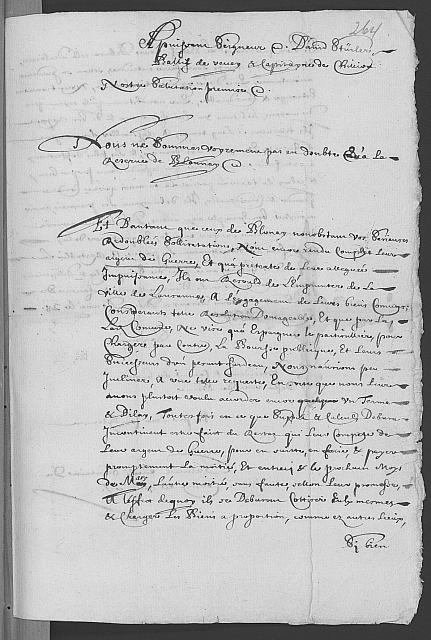 264
A puissant Seigneur David Stürler
Ballif de Vevey & Capitayne de Chillon
Nostre Salutation premise
Nous ne Sommes voyrement pas en doubte
Reserve de Blonnay
Et D'autant que ceux de Blonay nonobstant vos Serieuses
Redoublées Sollicitations, Nont encore rendu Complet leur
argent de Guerre, Et qu'a pretexte de leur alleguée
Impuissance, Ils ont Resolu de L'emprunter de la
ville de Lausanne, A L'engagement de leurs biens Communs
Considerants telle Resolution Domageable, Et que par la
La Commune, Ne vise qu'a Espargner le particullier, pour
Charger par Contre, La Bourse publique, Et leurs
Successeurs d'un pesant fardeau, Nous n'avons peu
Incliner, A une telle requeste, En sorte que nous leur
avons plustost voulu accorder encor quelque un Terme
& Dilay, Toutesfois en ce que
Incontinent estre fait du Restat qui leur Compete de
Leur argent de Guerre, pour en suitte, en faire & payer
promptement la moitié, Et entre icy & le prochain Moys
de Mars, L'autre moitié, sans faute, selon leur promesse,
A l'effect dequoy ils se Debvront Cottiser Eux mesmes
& Charger les Biens a proportion, comme ez autres Lieux,
Si bien